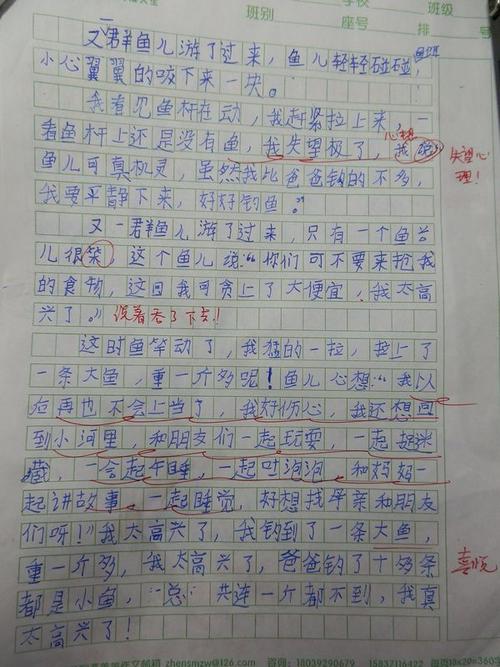 学校 班级
班别 座号 排 号
又一群鱼儿游了过来，鱼儿轻轻碰碰，
小心翼翼的咬下来一块。
我看见鱼杆在动，我赶紧拉上来，一
看鱼杆上还是没有鱼，我失望极了，心想
鱼儿可真机灵，虽然我比爸爸钓的不多，
失望心
理！
我要平静下来，好好钓鱼。
又一群鱼儿游了过来，只有一个鱼
儿很笨，这个鱼儿说：“你们可不要来抢我
的食物，这回我可贪上了大便宜，我太高
兴了。” 说着吞了下去！
这时鱼竿动了，我猛的一拉，拉上了
一条大鱼，重一斤多呢！鱼儿心想：“我以
后再也不会上当了，我好伤心，我还想回
到小河里，和朋友们一起玩耍，一起捉迷
藏，一会起午睡，一起吐泡泡，和妈妈一
起讲故事，一起睡觉，好想找母亲和朋友
们呀！”我太高兴了，我钓到了一条大鱼，
重一斤多，我太高兴了，爸爸钓了十多条
喜悦
都是小鱼，总共连一斤都不到，我真
太高兴了！
zhensmzw@126.com 咨询：18039290679